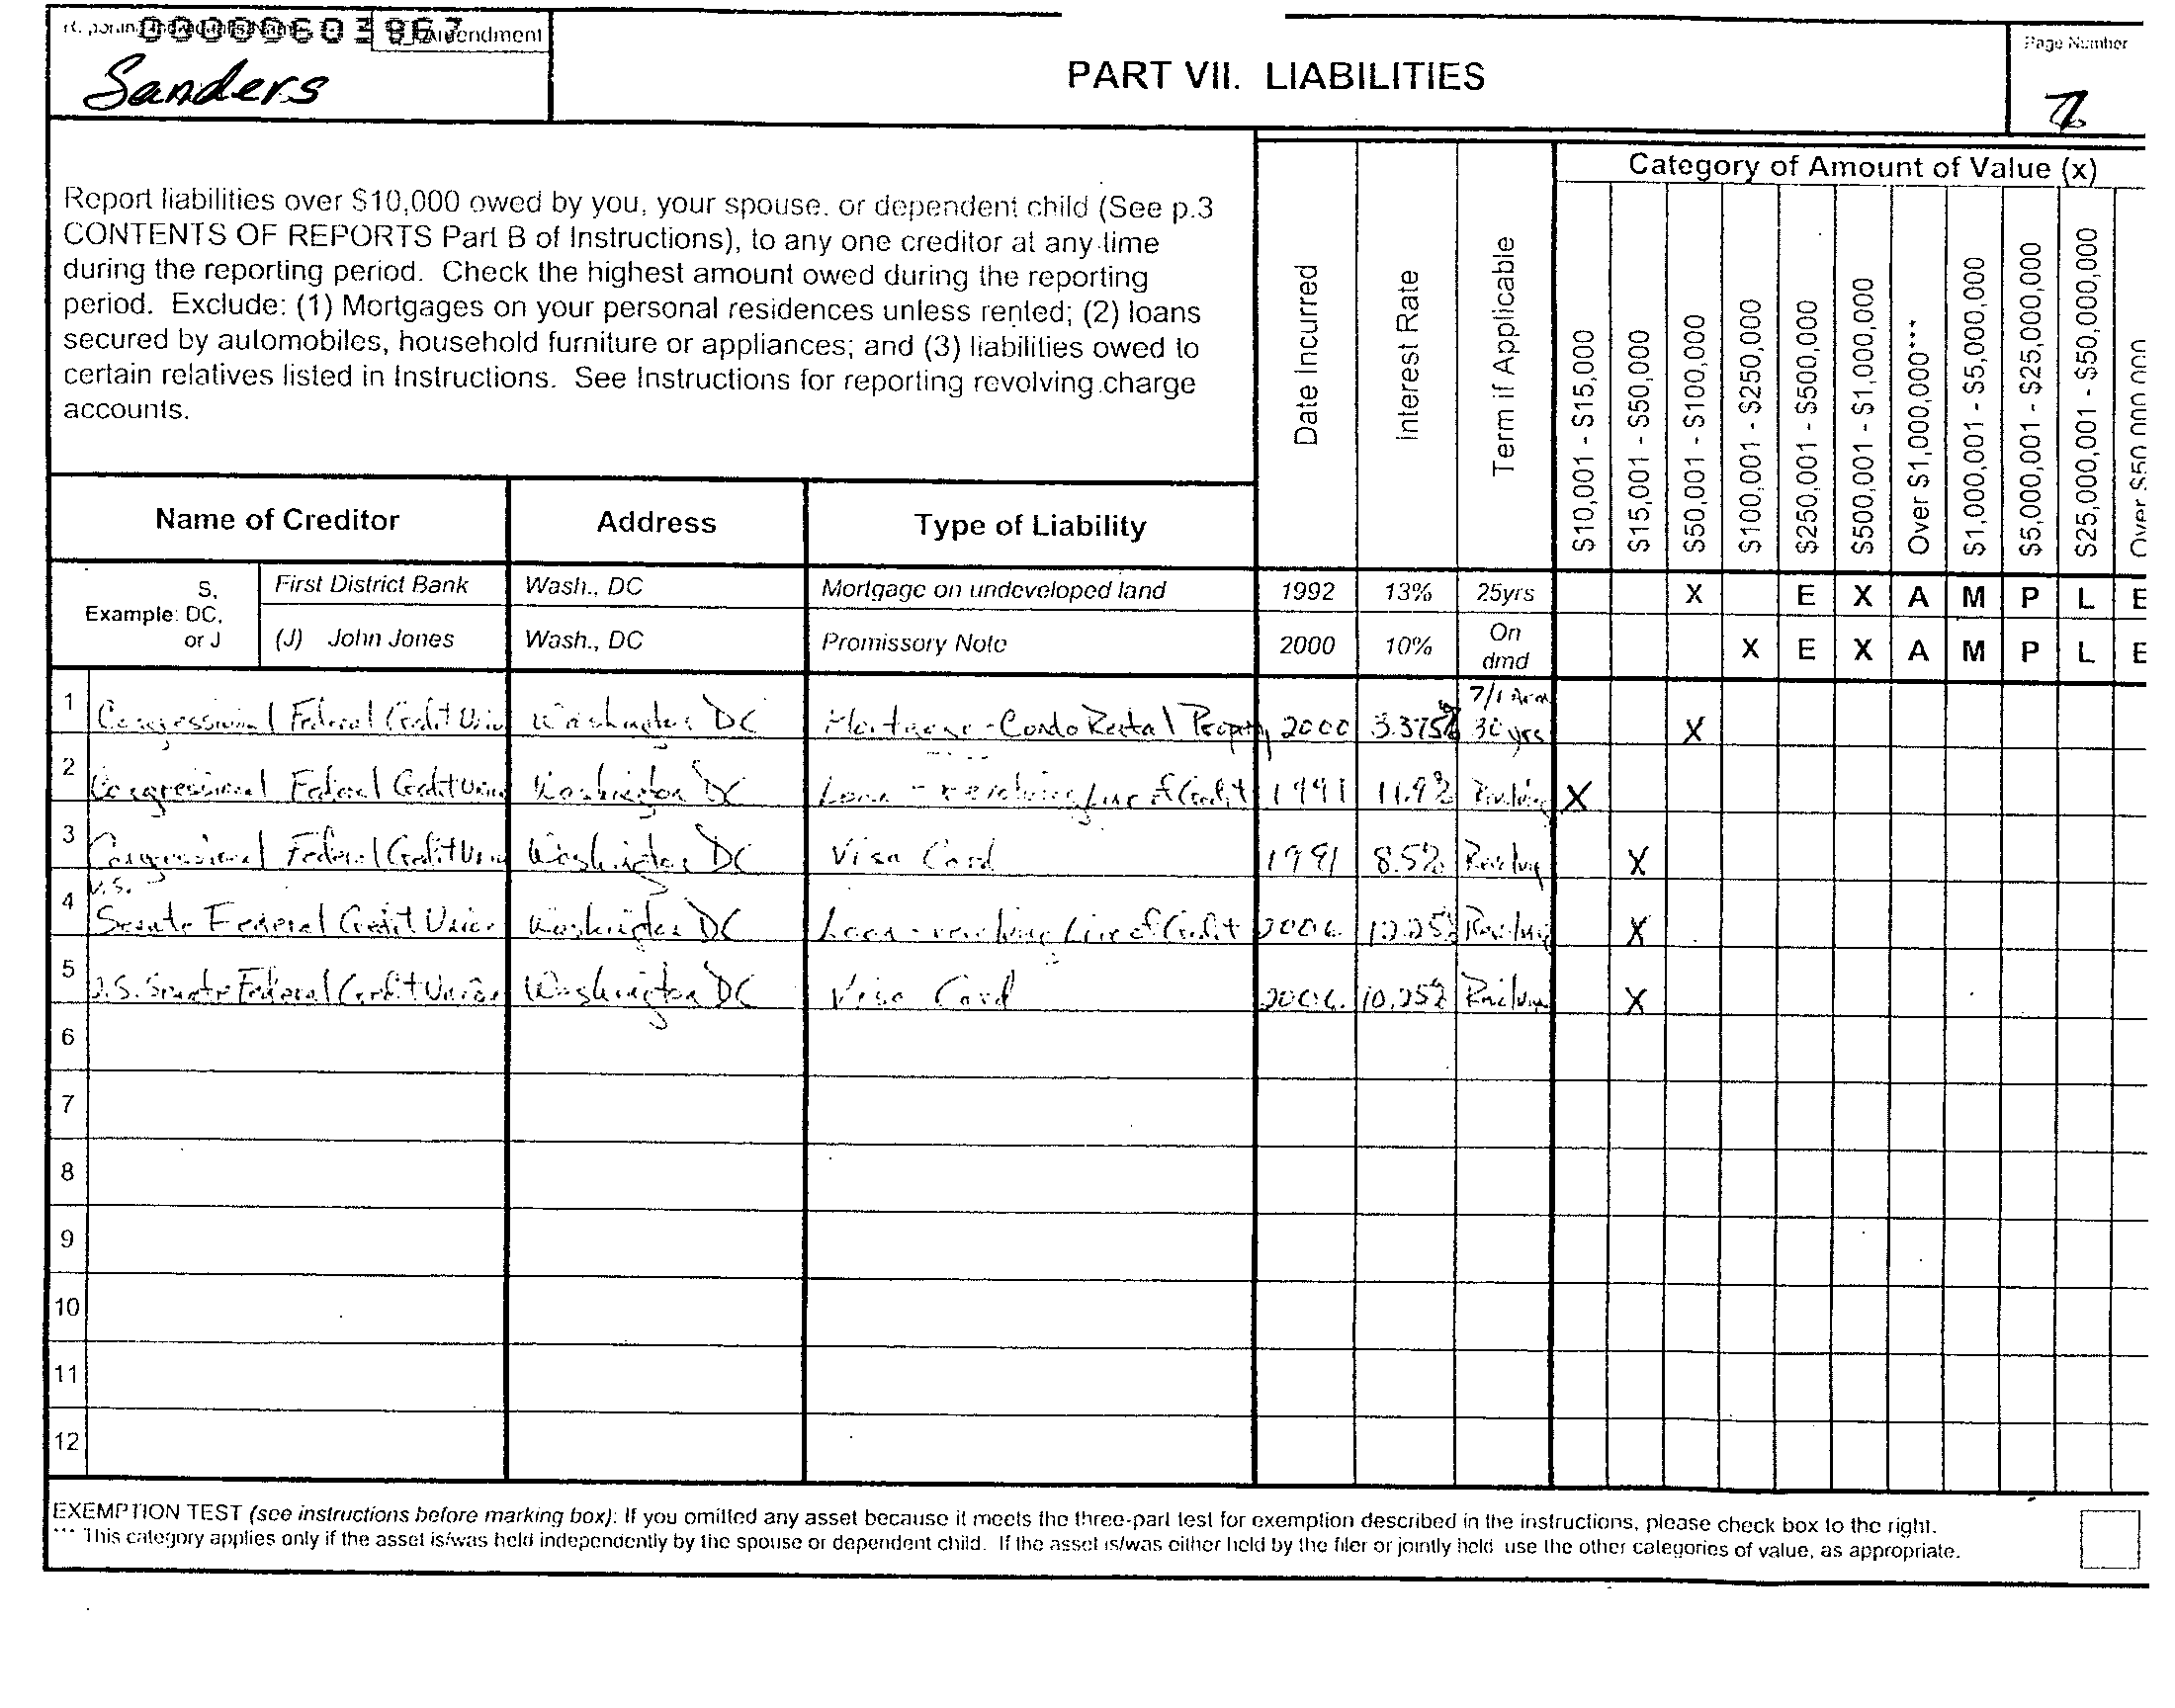 00000603867
Amendment
Sanders
PART VII. LIABILITIES
Page Number
Report liabilities over $10,000 owed by you, your spouse, or dependent child (See p.3
CONTENTS OF REPORTS Part B of Instructions), to any one creditor at any time
during the reporting period. Check the highest amount owed during the reporting
period. Exclude: (1) Mortgages on your personal residences unless rented; (2) loans
secured by automobiles, household furniture or appliances; and (3) liabilities owed to
certain relatives listed in Instructions. See Instructions for reporting revolving charge
accounts.
Date Incurred
Interest Rate
Term if Applicable
Category of Amount of Value (x)
$10,001 - $15,000
$15,001 - $50,000
$50,001 - $100,000
$100,001 - $250,000
$250,001 - $500,000
$500,001 - $1,000,000
Over $1,000,000***
$1,000,001 - $5,000,000
$5,000,001 - $25,000,000
$25,000,001 - $50,000,000
Over $50,000,000
Name of Creditor Address Type of Liability
Example: S, DC, or J
First District Bank Wash., DC Mortgage on undeveloped land 1992 13% 25yrs X E X A M P L E
(J) John Jones Wash., DC Promissory Note 2000 10% On dmd X E X A M P L E
1 Congressional Federal Credit Union Washington DC Mortgage - Condo Rental Property 2000 3.375% 7/1 Arm 30 yrs X
2 Congressional Federal Credit Union Washington DC Loan - revolving Line of Credit 1991 11.9% Revolving X
3 Congressional Federal Credit Union Washington DC Visa Card 1991 8.5% Revolving X
4 U.S. Senate Federal Credit Union Washington DC Loan - revolving Line of Credit 2006 12.25% Revolving X
5 U.S. Senate Federal Credit Union Washington DC Visa Card 2006 10.25% Revolving X
6
7
8
9
10
11
12
EXEMPTION TEST (see instructions before marking box): If you omitted any asset because it meets the three-part test for exemption described in the instructions, please check box to the right.
*** This category applies only if the asset is/was held independently by the spouse or dependent child. If the asset is/was either held by the filer or jointly held use the other categories of value, as appropriate.